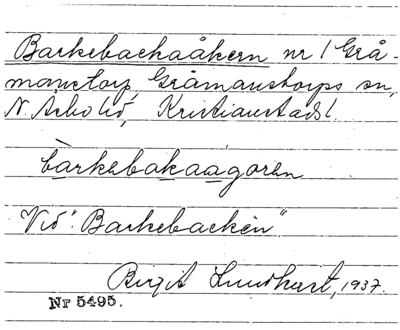 Barkebackaåkern nr 1 Grå-
manstorp, Gråmanstorps sn,
N. Åsbo hd, Kristianstads l.
bàrkebakaagorèn
Vid "Barkebacken"
Birgit Lundhart, 1937.
Nr 5495.